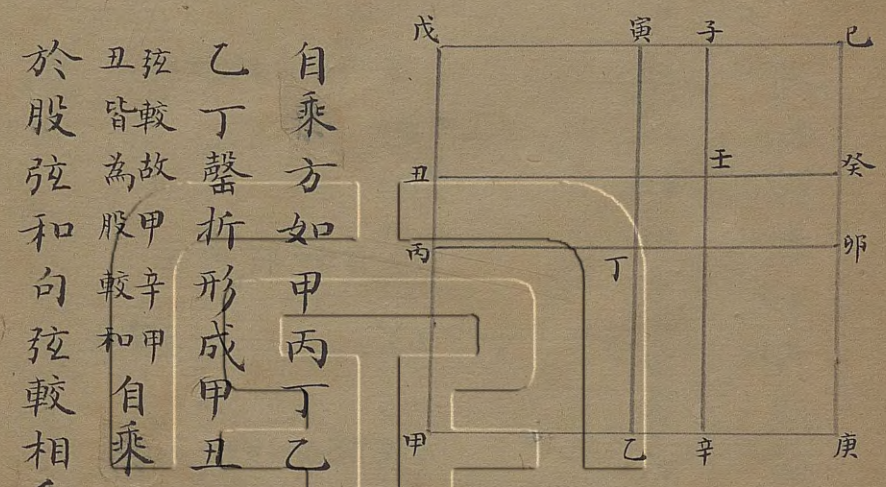 戊 寅 子 己
壬
丑 癸
丙 丁 卯
甲 乙 辛 庚
自乘方如甲丙丁乙
乙丁罄折形成甲丑
弦較故甲辛甲
丑皆為股較和
自乘
於股弦和句弦較相